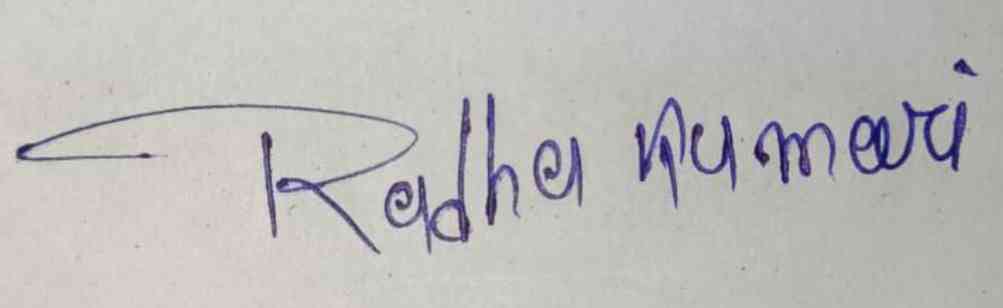 Radha Kumari